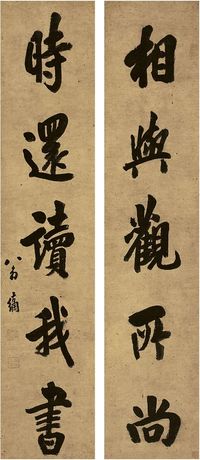 相與觀所尚
時還讀我書